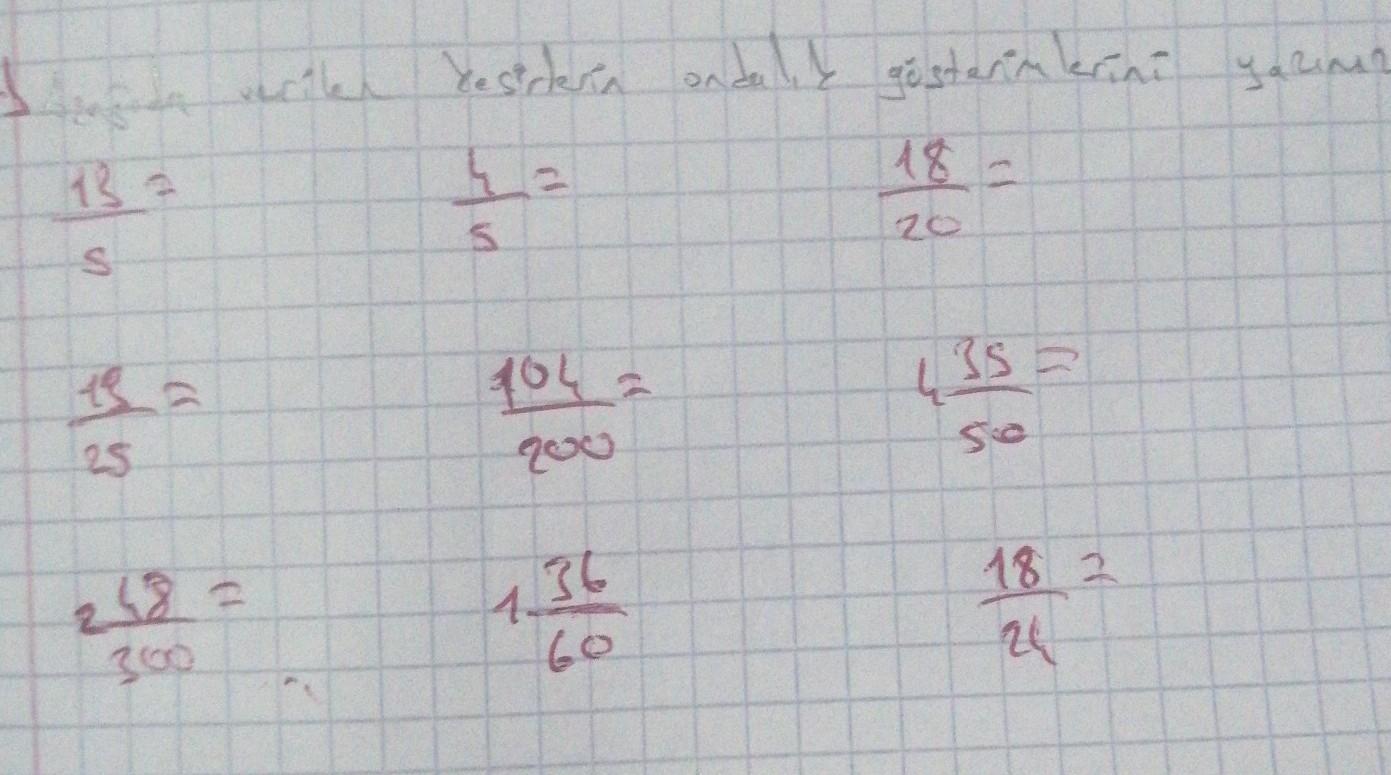 verilen kesirlerin ondalık gösterimlerini yazınız
13/5 = 4/5 = 18/20 =
19/25 = 104/200 = 4 35/50 =
2 48/300 = 1 36/60 18/24 =